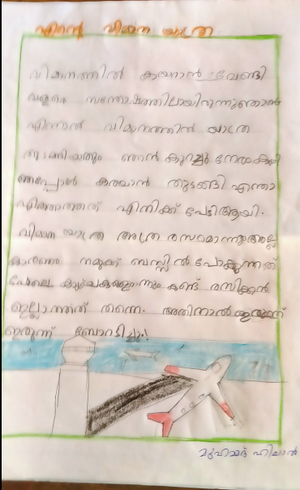 എന്റെ വിമാന യാത്ര
വിമാനത്തിൽ കയറാൻ വേണ്ടി
വളരെ സന്തോഷത്തിലായിരുന്നു ഞാൻ
എന്നാൽ വിമാനത്തിൻ യാത്ര
തുടങ്ങിയതും ഞാൻ കുറച്ചു നേരം കഴി
ഞ്ഞപ്പോൾ കരയാൻ തുടങ്ങി എന്തോ
എനിക്ക് പേടിആയി.
വിമാന യാത്ര അത്ര രസമൊന്നുംഅല്ല
കാരണം നമുക്ക് ബസ്സിൽപോകുന്നത്
പോലെ കാഴ്ചകളൊന്നും കണ്ട് രസിക്കാൻ
ഇല്ലാത്തത് തന്നെ. അതിനാൽ
ഇരുന്ന് ബോറടിച്ചു!
മുഹമ്മദ് ഹിഷാൻ